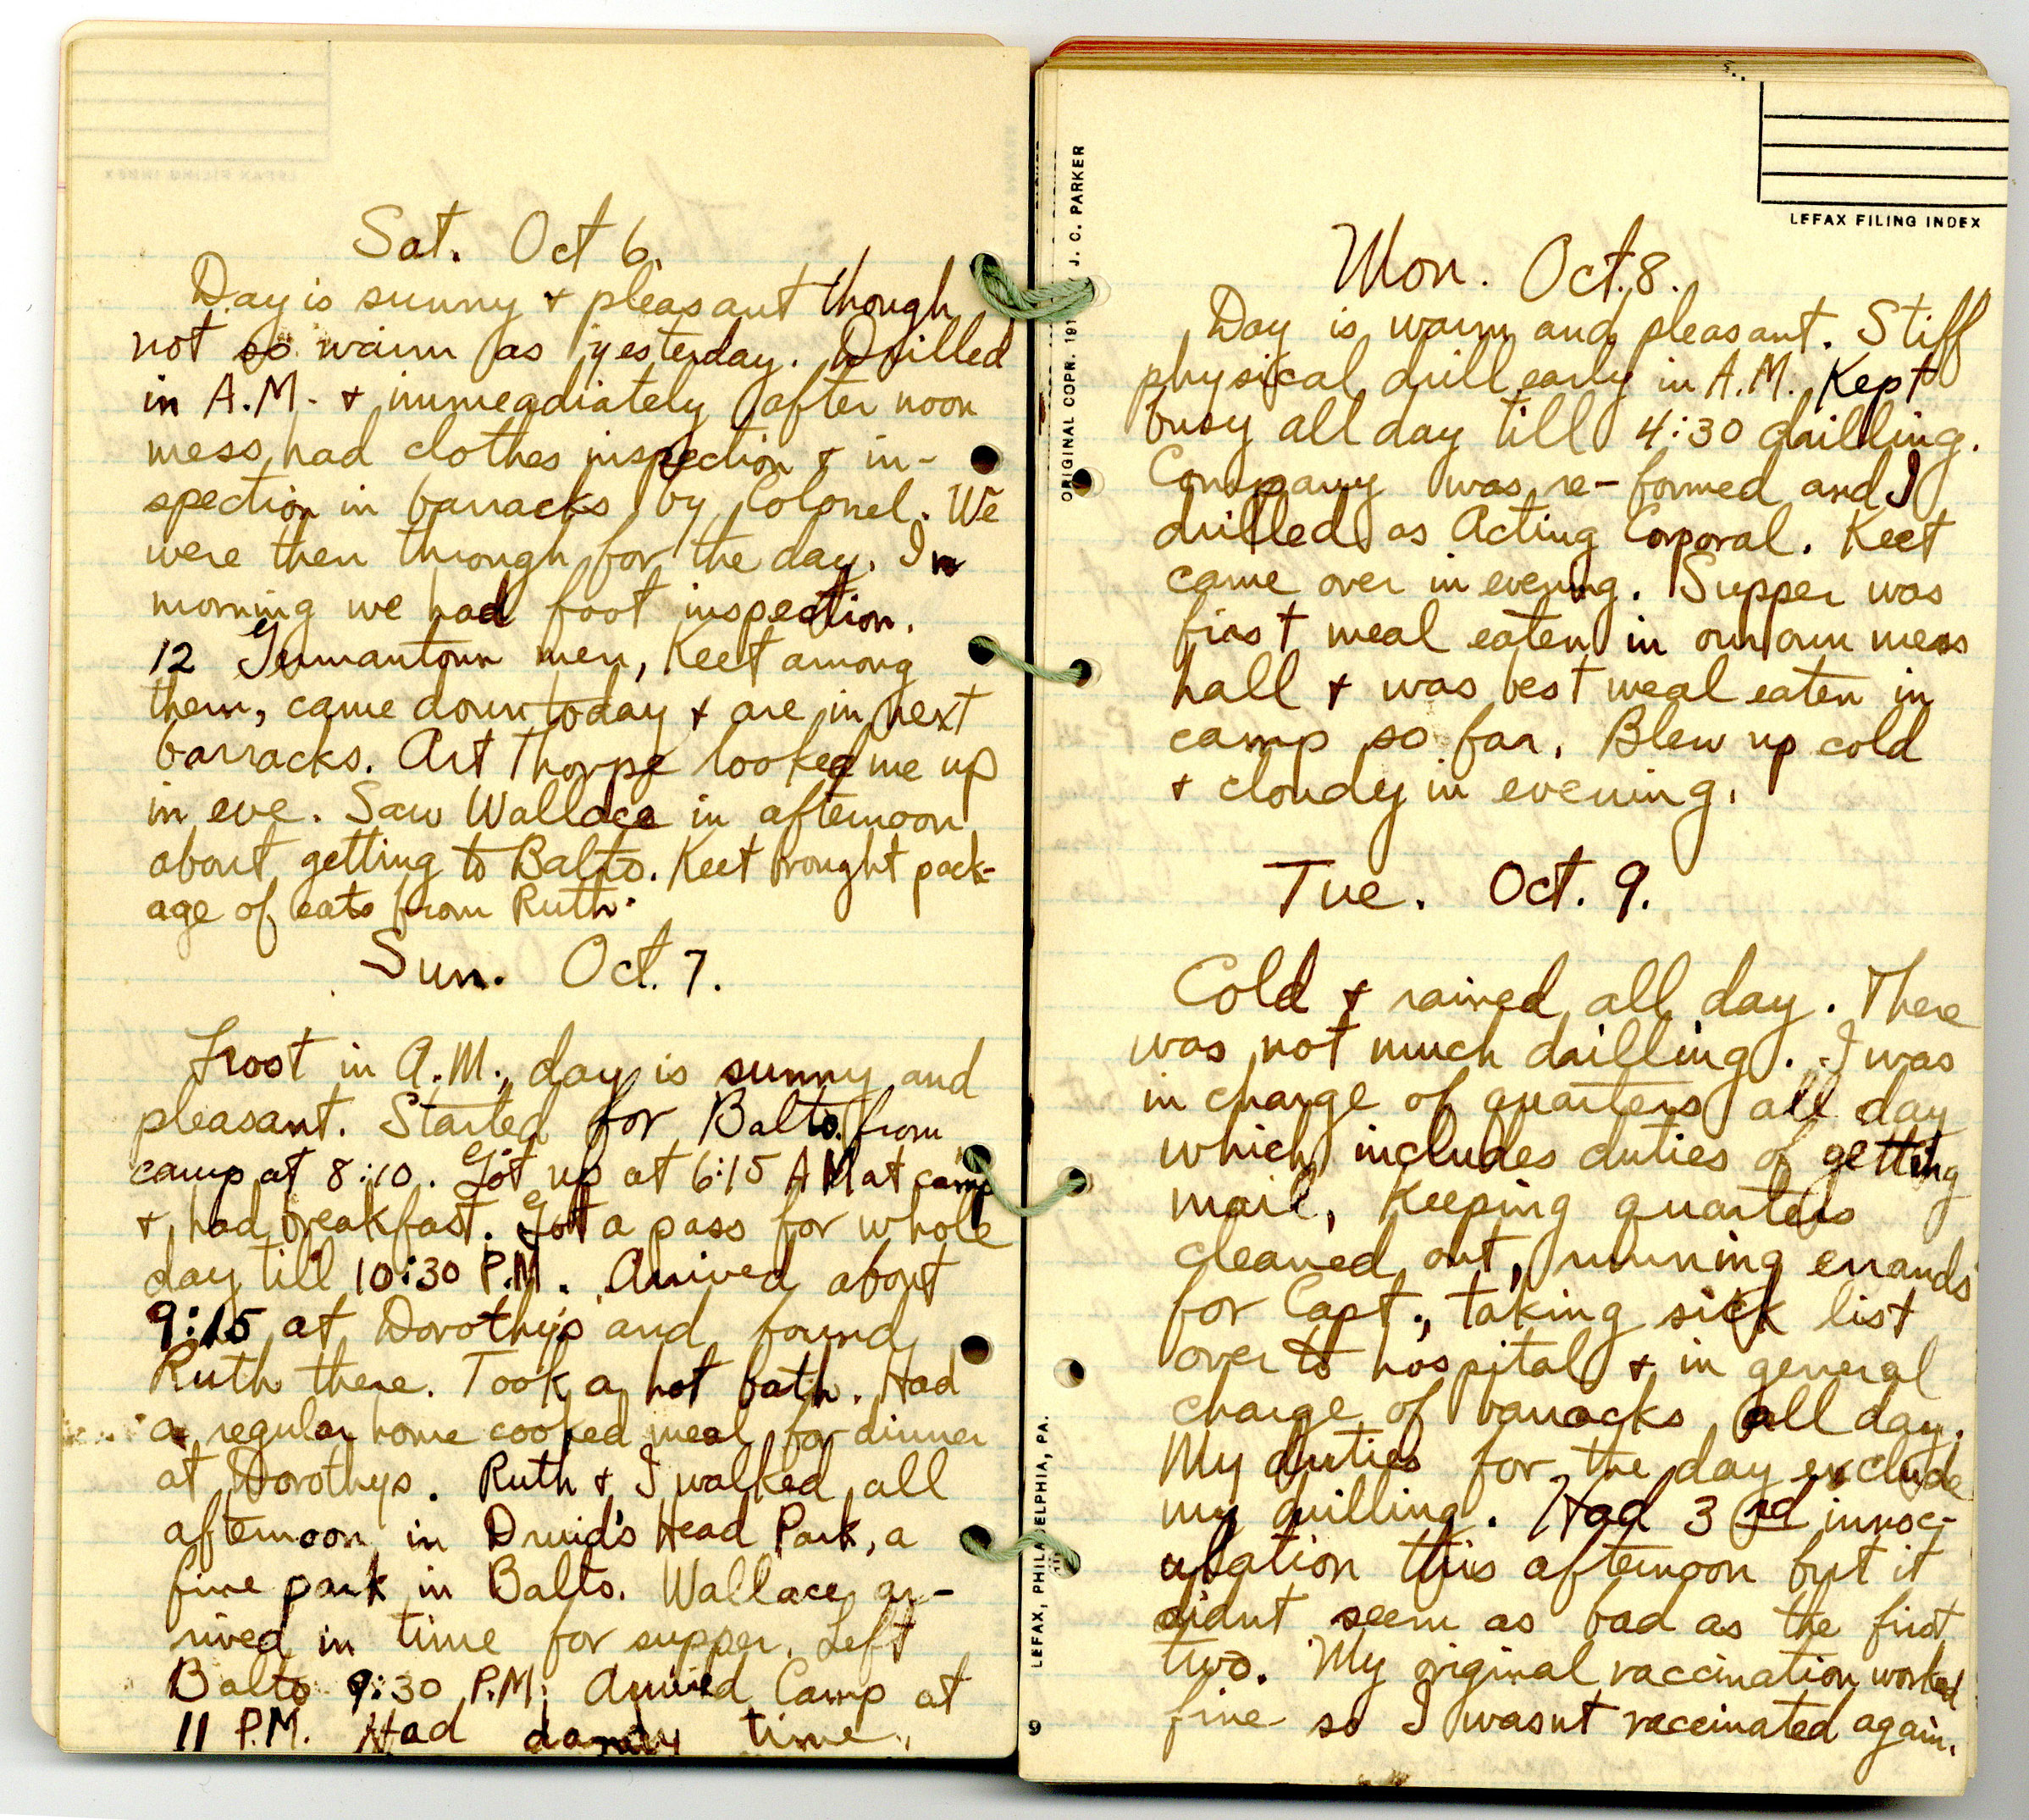 Sat. Oct 6.
Day is sunny + pleasant though
not so warm as yesterday. Drilled
in A.M. + immeadiately after noon
mess had clothes inspection + in-
spection in barracks by Colonel. We
were then through for the day. In
morning we had foot inspection.
12 Germantown men, Keet among
them, came down today + are in next
barracks. Art Thorpe looked me up
in eve. Saw Wallace in afternoon
about getting to Balto. Keet brought pack-
age of eats from Ruth.
Sun. Oct. 7.
Frost in A.M., day is sunny and
pleasant. Started for Balto. from
camp at 8:10. Got up at 6:15 AM at camp
+ had breakfast. Got a pass for whole
day till 10:30 P.M. Arrived about
9:15 at Dorothy's and found
Ruth there. Took a hot bath. Had
a regular home cooked meal for dinner
at Dorothys. Ruth + I walked all
afternoon in Druid's Head Park, a
fine park in Balto. Wallace ar-
rived in time for supper. Left
Balto 9:30 P.M. Arrived Camp at
11 P.M. Had dandy time.
LEFAX FILING INDEX
ORIGINAL COPR. 191 J. C. PARKER
Mon. Oct. 8.
Day is warm and pleasant. Stiff
physical drill early in A.M. Kept
busy all day till 4:30 drilling.
Company was re-formed and I
drilled as Acting Corporal. Keet
came over in evening. Supper was
first meal eaten in our own mess
hall + was best meal eaten in
camp so far. Blew up cold
+ cloudy in evening.
Tue. Oct. 9.
Cold + rained all day. There
was not much drilling. I was
in charge of quarters all day
which includes duties of getting
mail, keeping quarters
cleaned out, running errands
for Capt., taking sick list
over to hospital + in general
charge of barracks all day.
My duties for the day exclude
my drilling. Had 3rd innoc-
ulation this afternoon but it
didnt seem as bad as the first
two. My original vaccination worked
fine so I wasnt vaccinated again.
LEFAX, PHILADELPHIA, PA.
9